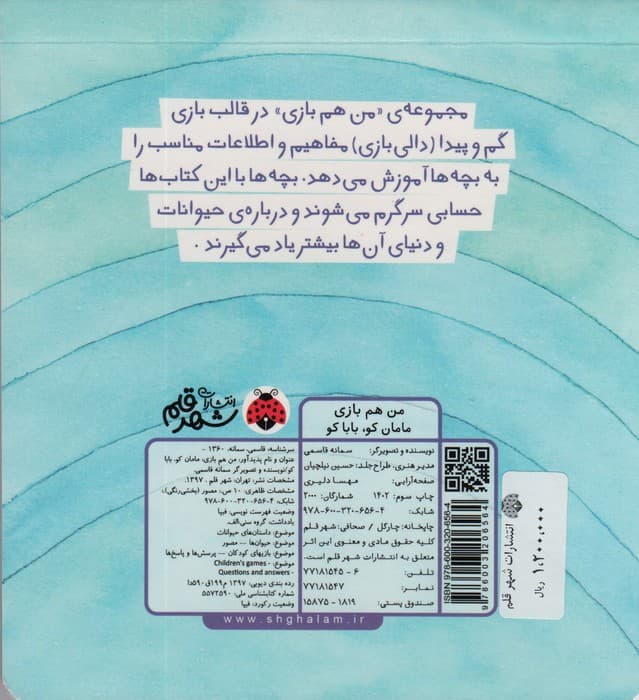 مجموعه‌ی «من هم بازی» در قالب بازی
گم و پیدا (دالی‌بازی) مفاهیم و اطلاعات مناسب را
به بچه‌ها آموزش می‌دهد. بچه‌ها با این کتاب‌ها
حسابی سرگرم می‌شوند و درباره‌ی حیوانات
و دنیای آن‌ها بیشتر یاد می‌گیرند.
انتشارات
شهر قلم
من هم بازی
مامان کو، بابا کو
نویسنده و تصویرگر: سمانه قاسمی
مدیر هنری، طراح جلد: حسین نیلچیان
صفحه‌آرایی: مهسا دلیری
چاپ سوم: ۱۴۰۲ شمارگان: ۲۰۰۰
شابک: ۹۷۸-۶۰۰-۳۲۰-۶۵۶-۴
چاپخانه: چارگل / صحافی: شهر قلم
کلیه حقوق مادی و معنوی این اثر
متعلق به انتشارات شهر قلم است.
تلفن: ۶ - ۷۷۱۸۱۵۴۵
نمابر: ۷۷۱۸۱۵۴۷
صندوق پستی: ۱۸۱۹ - ۱۵۸۷۵
سرشناسه: قاسمی، سمانه، ۱۳۶۰ -
عنوان و نام پدیدآور: من هم بازی، مامان کو، بابا
کو/نویسنده و تصویرگر سمانه قاسمی.
مشخصات نشر: تهران: شهر قلم، ۱۳۹۷.
مشخصات ظاهری: ۱۰ ص، مصور (بخشی رنگی).
شابک: ۹۷۸-۶۰۰-۳۲۰-۶۵۶-۴
وضعیت فهرست نویسی: فیپا
یادداشت: گروه سنی: الف.
موضوع: داستان‌های حیوانات
موضوع: حیوان‌ها -- مصور
موضوع: بازیهای کودکان -- پرسش‌ها و پاسخ‌ها
موضوع: Children's games -
Questions and answers -
رده بندی دیویی: ۱۳۹۷ م۱۹۹ق ۵۹۰/۱د
شماره کتابشناسی ملی: ۵۵۷۲۵۹۰
وضعیت رکورد: فیپا
www.shghalam.ir
ISBN 978-600-320-656-4
9786003206564
انتشارات شهر قلم
۱،۲۰۰،۰۰۰ ریال